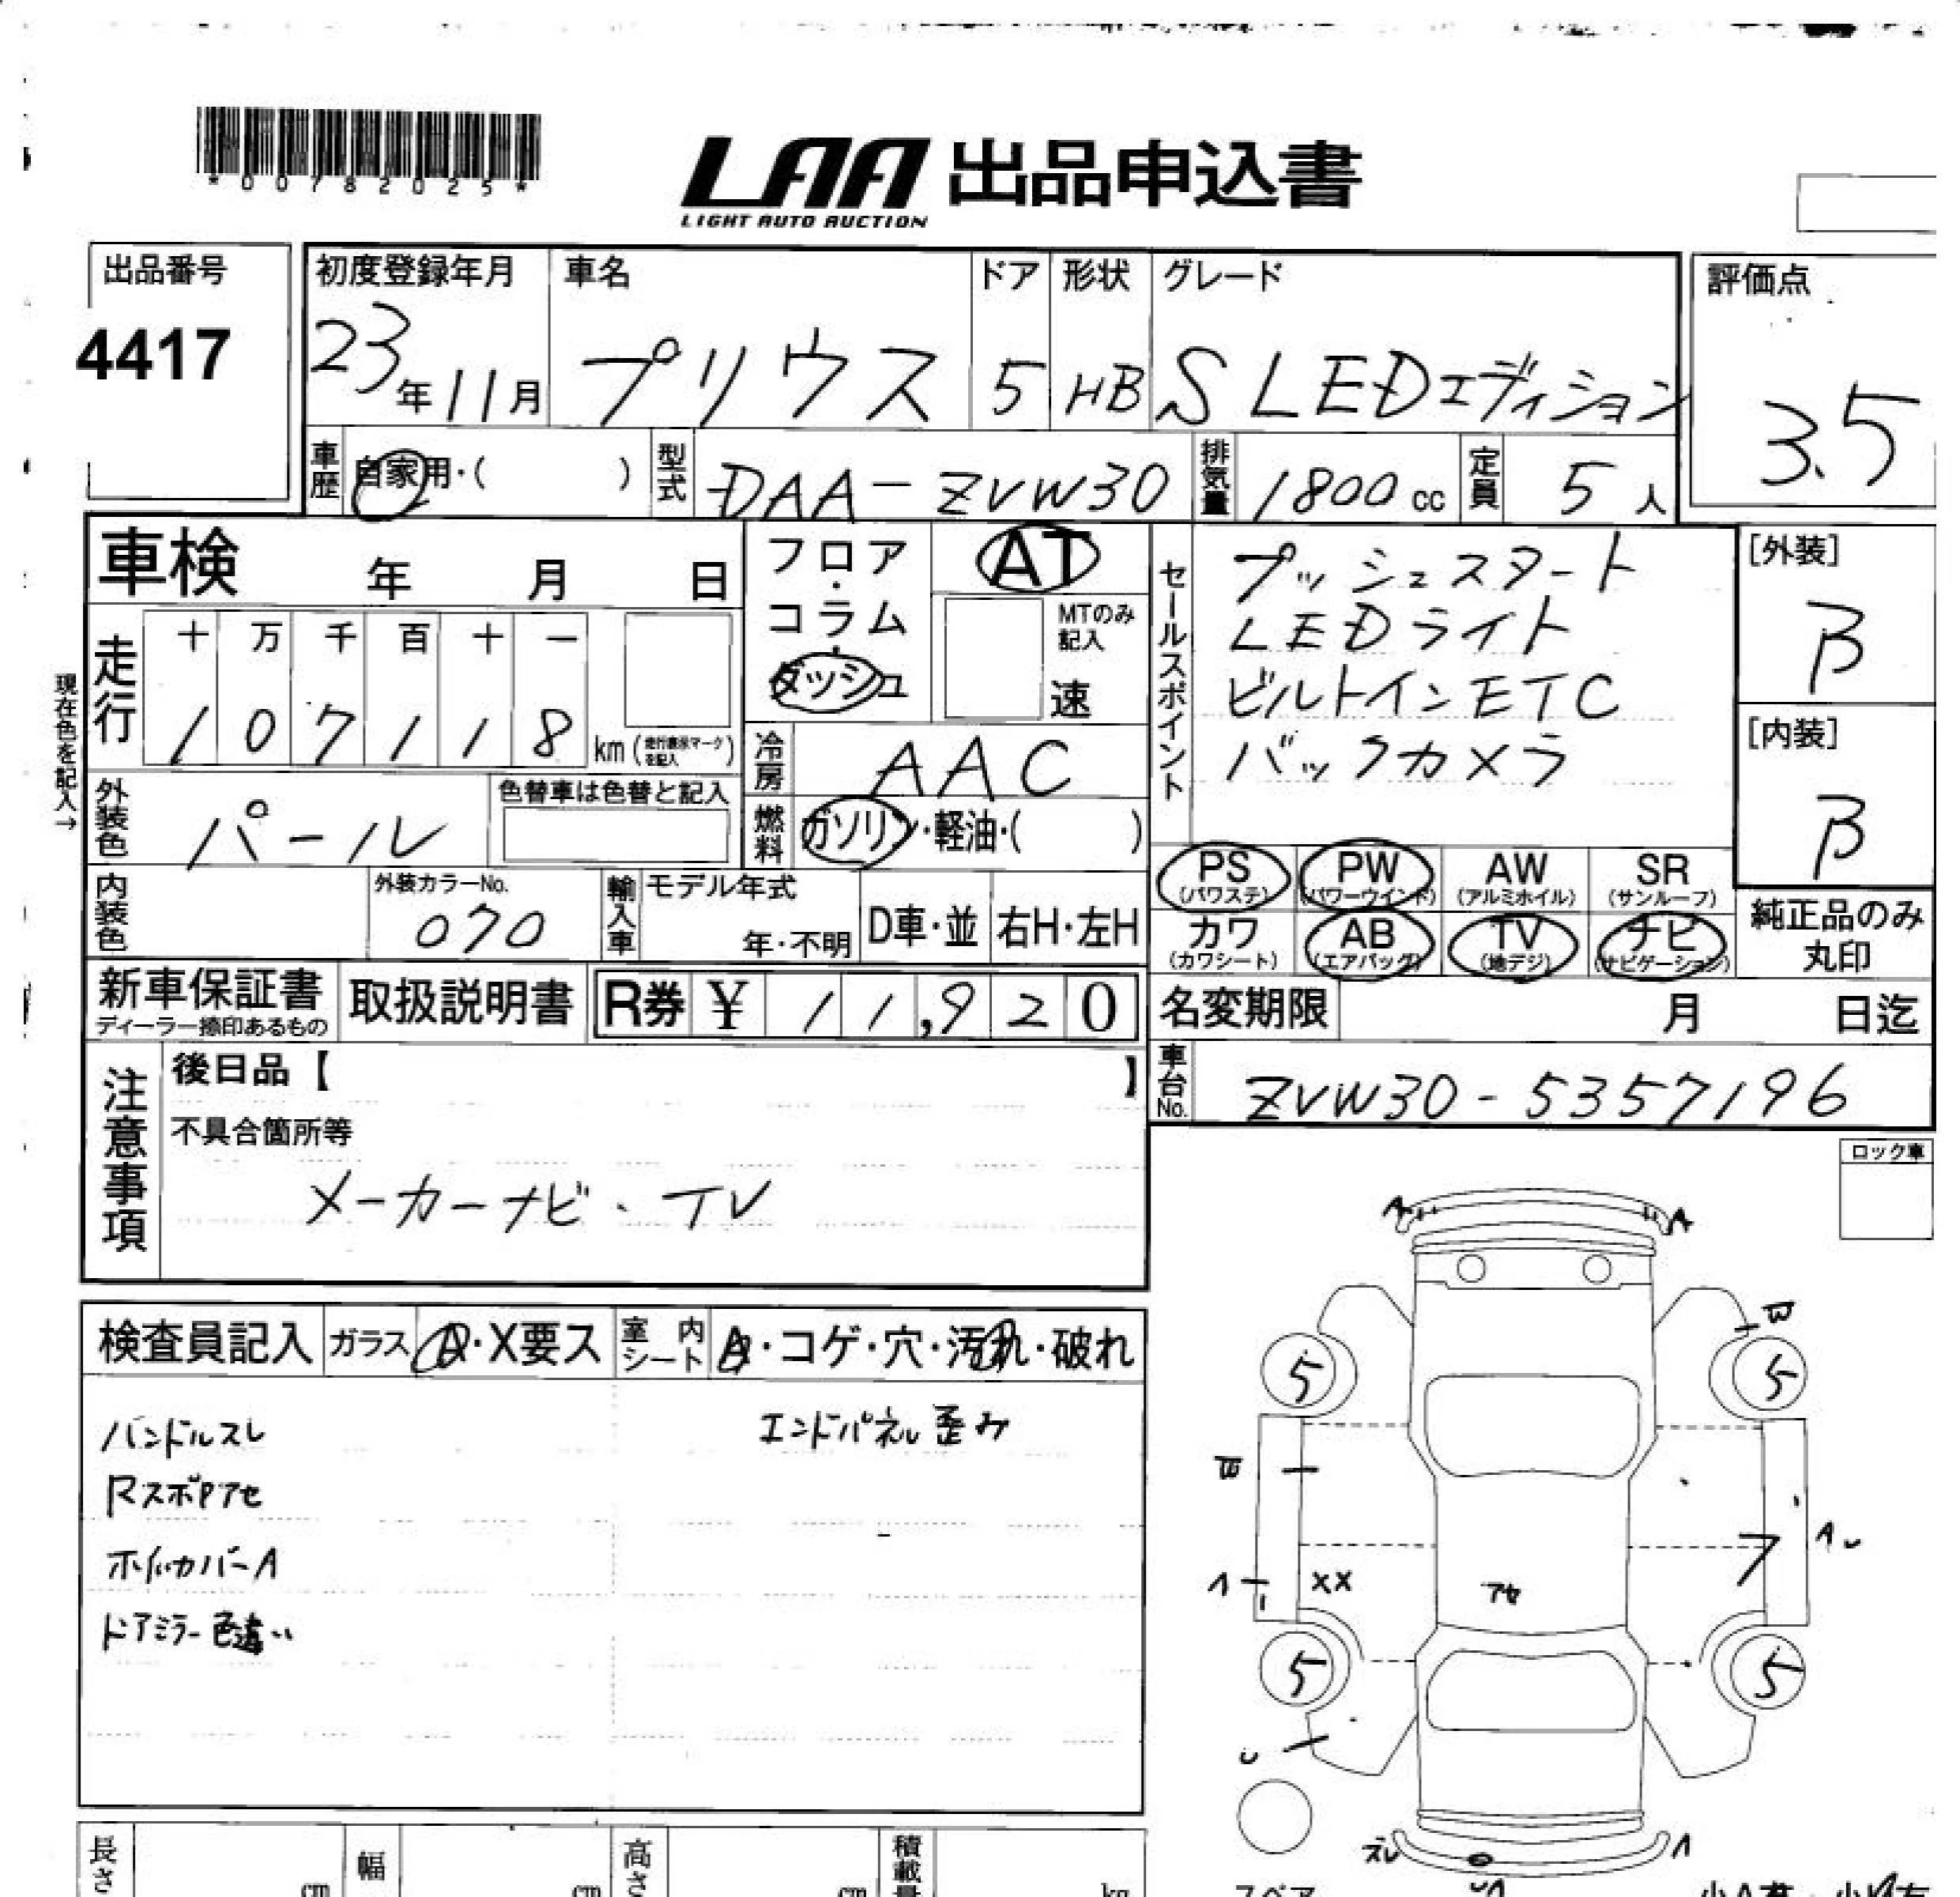 *00782025*
LAA 出品申込書
LIGHT AUTO AUCTION
出品番号
4417
初度登録年月
23年11月
車名
プリウス
ドア
5
形状
HB
グレード
S LEDエディション
評価点
3.5
車歴
自家用・( )
型式
DAA-ZVW30
排気量
1800cc
定員
5人
車検 年 月 日
現在色を記入→
走行
十 万 千 百 十 一
1 0 7 1 1 8 km (走行表示マークを記入)
外装色
パール
色替車は色替と記入
内装色
外装カラーNo.
070
輸入車
モデル年式
年・不明
D車・並
右H・左H
フロア・コラム・ダッシュ
AT
MTのみ記入
速
冷房
AAC
燃料
ガソリン・軽油・( )
セールスポイント
プッシュスタート
LEDライト
ビルトインETC
バックカメラ
[外装]
B
[内装]
B
PS (パワステ) PW (パワーウインド) AW (アルミホイル) SR (サンルーフ)
カワ (カワシート) AB (エアバッグ) TV (地デジ) ナビ (ナビゲーション)
純正品のみ丸印
新車保証書
ディーラー捺印あるもの
取扱説明書
R券 ¥ 11,920
名変期限 月 日迄
車台No.
ZVW30-5357196
注意事項
後日品【 】
不具合箇所等
メーカーナビ・TV
ロック車
検査員記入
ガラス A・X要ス
室内シート A・コゲ・穴・汚れ・破れ
ハンドルスレ
エンドパネル歪み
RスポPアセ
ホイルカバーA
ドアミラー色違い
A A
5 5
XX
アセ
5 5
長さ cm
幅 cm
高さ cm
積載量 kg
スペア